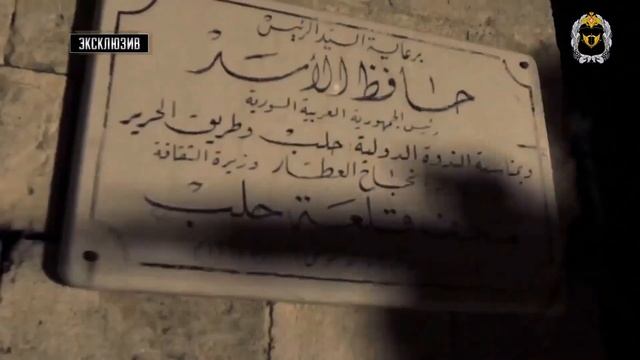 ЭКСКЛЮЗИВ
برعاية السيد الرئيس
حافظ الأسد
رئيس الجمهورية العربية السورية
وبمناسبة الندوة الدولية حلب وطريق الحرير
نجاح العطار وزيرة الثقافة
قلعة حلب